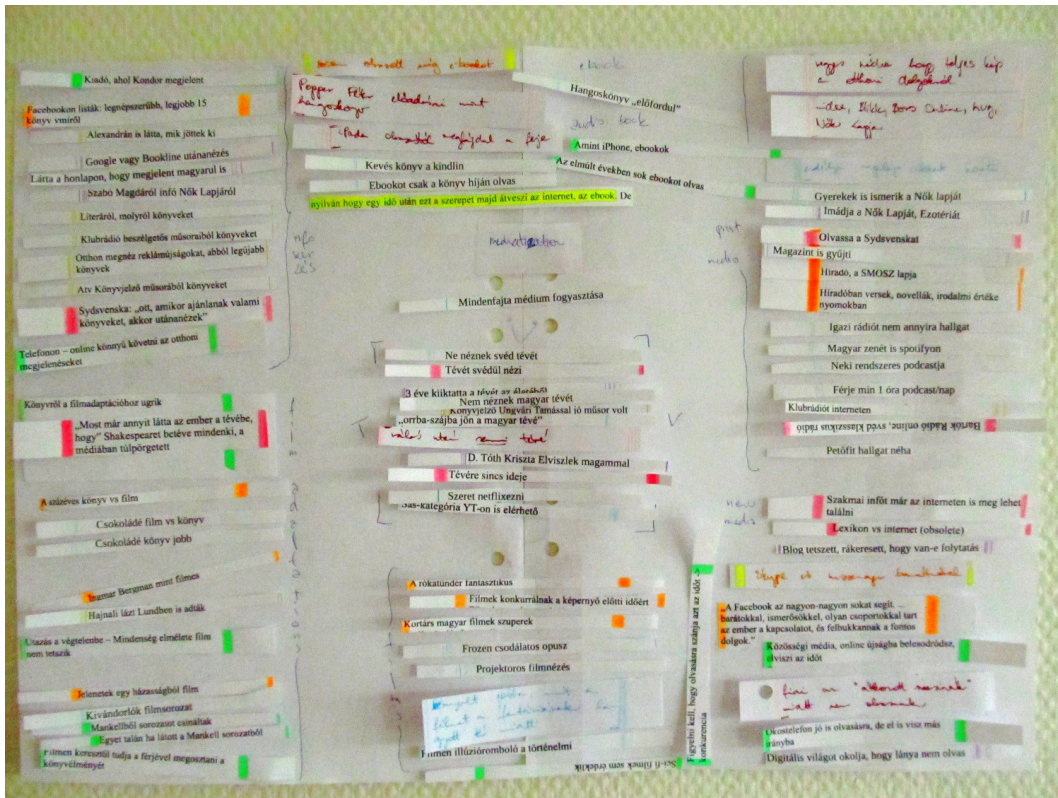 Kiadó, ahol Kondor megjelent
Facebookon listák: legnépszerűbb, legjobb 15
könyv vmiről
Alexandrán is látta, mik jöttek ki
Google vagy Bookline utánanézés
Látta a honlapon, hogy megjelent magyarul is
Szabó Magdáról infó Nők Lapjáról
Literáról, molyról könyveket
Klubrádió beszélgetős műsoraiból könyveket
Otthon megnéz reklámújságokat, abból legújabb
könyvek
Atv Könyvjelző műsorából könyveket
Sydsvenska: „ott, amikor ajánlanak valami
könyveket, akkor utánanézek”
Telefonon – online könnyű követni az otthoni
megjelenéseket
Könyvről a filmadaptációhoz ugrik
„Most már annyit látta az ember a tévébe,
hogy” Shakespearest betéve mindenki, a
médiában túlpörgetett
A százéves könyv vs film
Csokoládé film vs könyv
Csokoládé könyv jobb
Ingmar Bergman mint filmes
Hajnali lázt Lundben is adták
Utazás a végtelenbe – Mindenség elmélete film
nem tetszik
Jelenetek egy házasságból film
Kivándorlók filmsorozat
Mankellből sorozatot csináltak
Egyet talán ha látott a Mankell sorozatból
Filmen keresztül tudja a férjével megosztani a
könyvélményét
olvasott még ebookot
Popper Péter előadásai mint
hangoskönyv
olvasástól megfájdul a feje
Kevés könyv a kindlin
Ebookot csak a könyv híján olvas
nyilván hogy egy idő után ezt a szerepet majd átveszi az internet, az ebook. De
ebook
Hangoskönyv „előfordul”
audio book
Amint iPhone, ebookok
Az elmúlt években sok ebookot olvas
Mindenfajta médium fogyasztása
Ne néznek svéd tévét
Tévét svédül nézi
3 éve kiiktatta a tévét az életéből
Nem néznek magyar tévét
Könyvjelző Ungvári Tamással jó műsor volt
„orrba-szájba jön a magyar tévé”
T
V
D. Tóth Kriszta Elviszlek magammal
Tévére sincs ideje
Szeret netflixezni
Sas-kategória YT-on is elérhető
A rókatündér fantasztikus
Filmek konkurrálnak a képernyő előtti időért
Kortárs magyar filmek szuperek
Frozen csodálatos opusz
Projektoros filmnézés
Filmen illúzióromboló a történelmi
Sci-fi filmek sem érdeklik
Figyelni kell, hogy olvasásra szánja azt az időt ->
konkurencia
hogy teljes kép
Blikk, Bors Online, hvg,
Nők Lapja
Gyerekek is ismerik a Nők lapját
Imádja a Nők Lapját, Ezotériát
print
media
Olvassa a Sydsvenskat
Magazint is gyűjti
Híradó, a SMOSZ lapja
Híradóban versek, novellák, irodalmi értéke
nyomokban
Igazi rádiót nem annyira hallgat
Magyar zenét is spotifyon
Neki rendszeres podcastja
Férje min 1 óra podcast/nap
Klubrádiót interneten
Bartók Rádió online, svéd klasszikus rádió
Petőfit hallgat néha
new
media
Szakmai infót már az interneten is meg lehet
találni
Lexikon vs internet (obsolete)
Blog tetszett, rákeresett, hogy van-e folytatás
„A Facebook az nagyon-nagyon sokat segít. ...
barátokkal, ismerősökkel, olyan csoportokkal tart
az ember a kapcsolatot, és felbukkannak a fontos
dolgok.”
Közösségi média, online újságba belesodródsz,
elviszi az időt
Okostelefon jó is olvasásra, de el is visz más
irányba
Digitális világot okolja, hogy lánya nem olvas